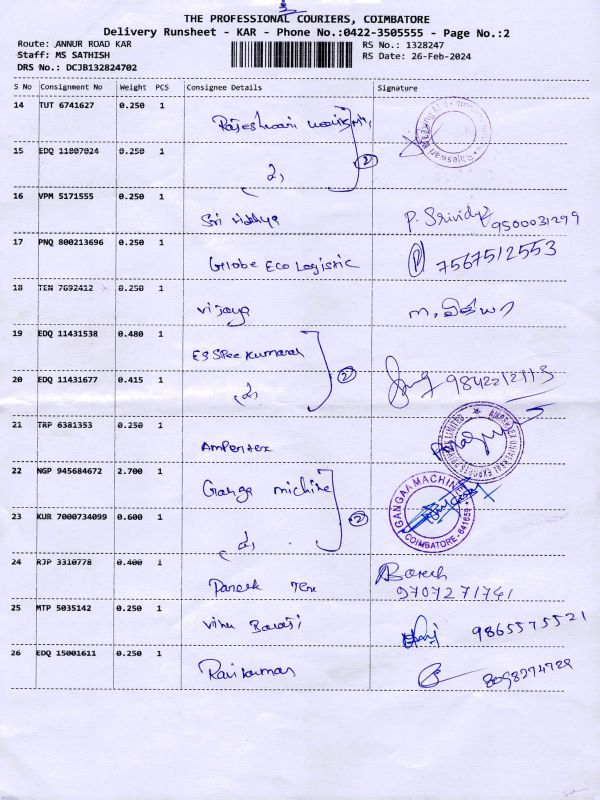 THE PROFESSIONAL COURIERS, COIMBATORE
Delivery Runsheet - KAR - Phone No.:0422-3505555 - Page No.:2
Route: ANNUR ROAD KAR
RS No.: 1328247
Staff: MS SATHISH
RS Date: 26-Feb-2024
DRS No.: DCJB132824702
S No Consignment No Weight PCS Consignee Details Signature
14 TUT 6741627 0.250 1 Rajeshwari
15 EDQ 11807024 0.250 1
2
16 VPM 5171555 0.250 1 Sri vidhya P. Srividya 9500031299
17 PNQ 800213696 0.250 1 Globe Eco Logistic 7567512553
18 TEN 7692412 0.250 1 Vijaya
19 EDQ 11431538 0.480 1
20 EDQ 11431677 0.415 1
2
21 TRP 6381353 0.250 1 Ampentex
22 NGP 945684672 2.700 1 Ganga michine
GANGAA MACHINE
COIMBATORE - 641659
23 KUR 7000734099 0.600 1
2
24 RJP 3310778 0.400 1
9707271741
25 MTP 5035142 0.250 1 9865575521
26 EDQ 15001611 0.250 1 Ravikumar 8098274728